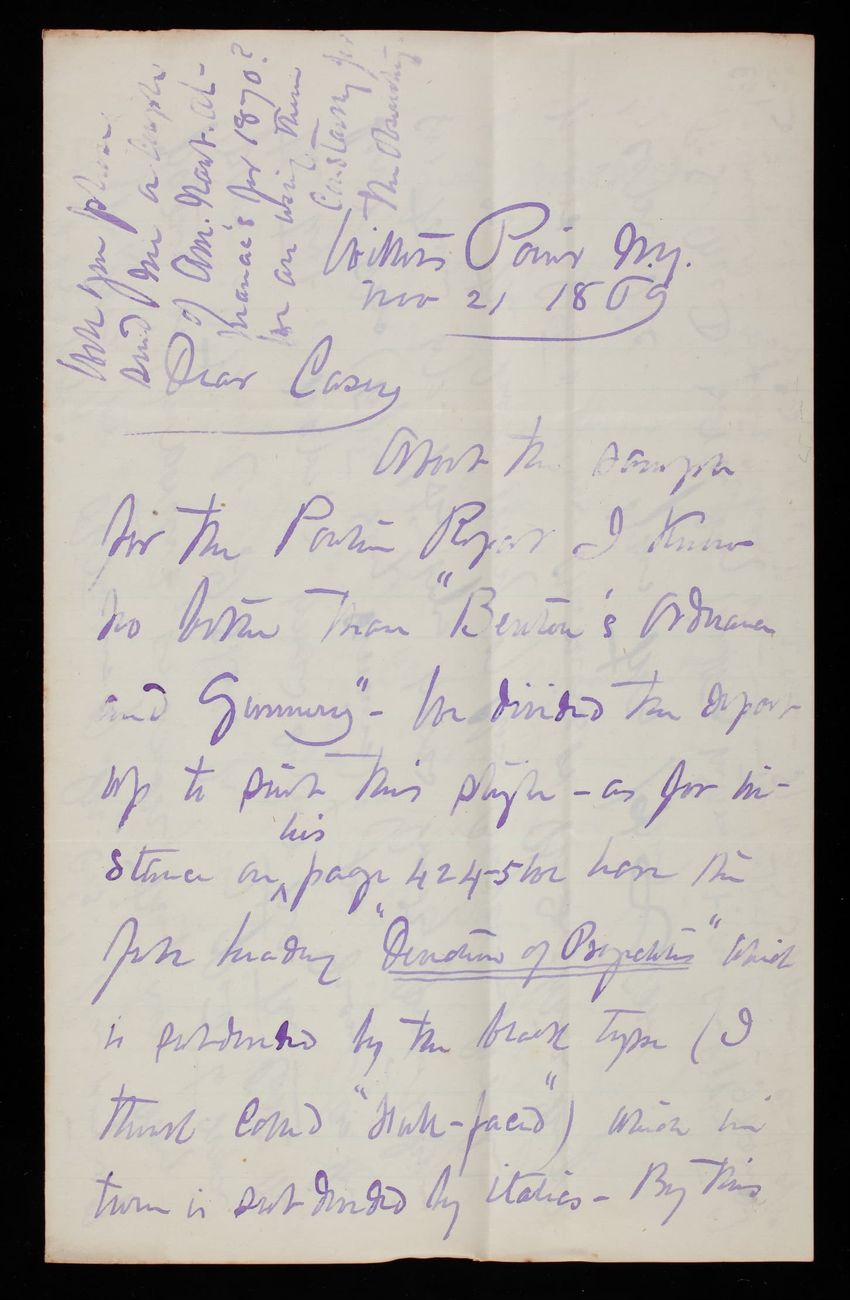 Will you please
send me a couple
of Am. Naut. Al-
manac's for 1870?
We are using them
constantly for
the Observatory.
Willets Point N.Y.
Nov 21 1869
Dear Casey
About the sample
for the Ponton Report I know
no better than "Benton's Ordnance
and Gunnery" - We divided the report
up to suit this style - as for in-
stance on his page 424-5 we have the
full heading "Deviation of Projectiles" which
is subdivided by the black type (I
think called "full-faced") which in
turn is subdivided by italics - By this